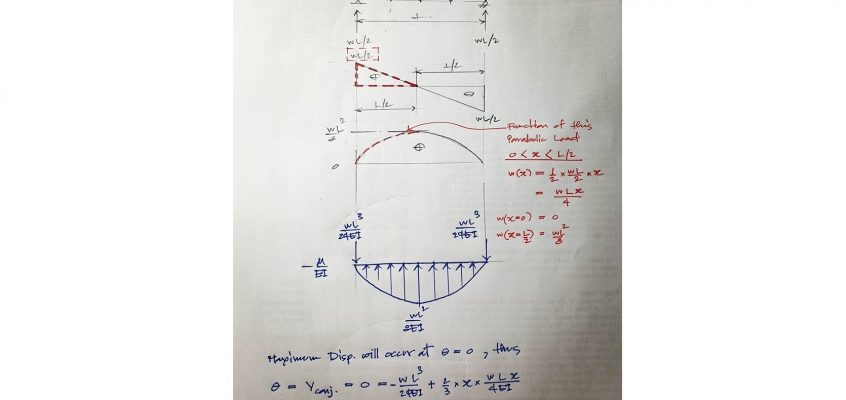 L
wL/2 wL/2
wL/2
L/2
⊕ ⊖
L/2
wL/2
Function of this
Parabolic Load
0 < x < L/2
wL²/8
w(x) = 1/2 × wL/2 × x
⊕
0
= wLx/4
w(x=0) = 0
w(x=L/2) = wL²/8
wL³/24EI wL³/24EI
- M/EI
wL²/8EI
Maximum Disp. will occur at θ = 0, thus
θ = Vconj. = 0 = - wL³/24EI + 2/3 × x × wLx/4EI